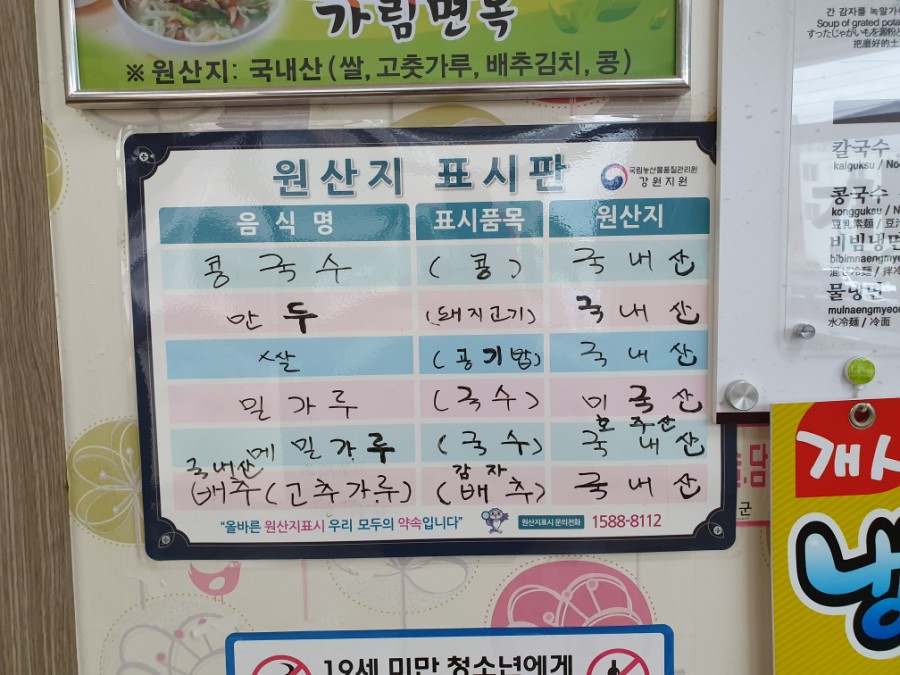 가림면옥
※ 원산지: 국내산 (쌀, 고춧가루, 배추김치, 콩)
원산지 표시판
국립농산물품질관리원
강원지원
음식명 표시품목 원산지
콩국수 (콩) 국내산
만두 (돼지고기) 국내산
쌀 (공기밥) 국내산
밀가루 (국수) 미국산
호주산
메밀가루 (국수) 국내산
국내산 감자
배추(고추가루) (배추) 국내산
"올바른 원산지표시 우리 모두의 약속입니다" 원산지표시 문의전화 1588-8112
19세 미만 청소년에게
간 감자를 녹말가
Soup of grated pota
すったじゃがいもを澱粉と
把磨好的土
칼국수
kalguksu / Noo
콩국수
kongguksu / N
豆乳素麺 / 豆汁
비빔냉면
bibimnaengmye
물냉면
mulnaengmyeon
水冷麺 / 冷面
담
군
개시
냉